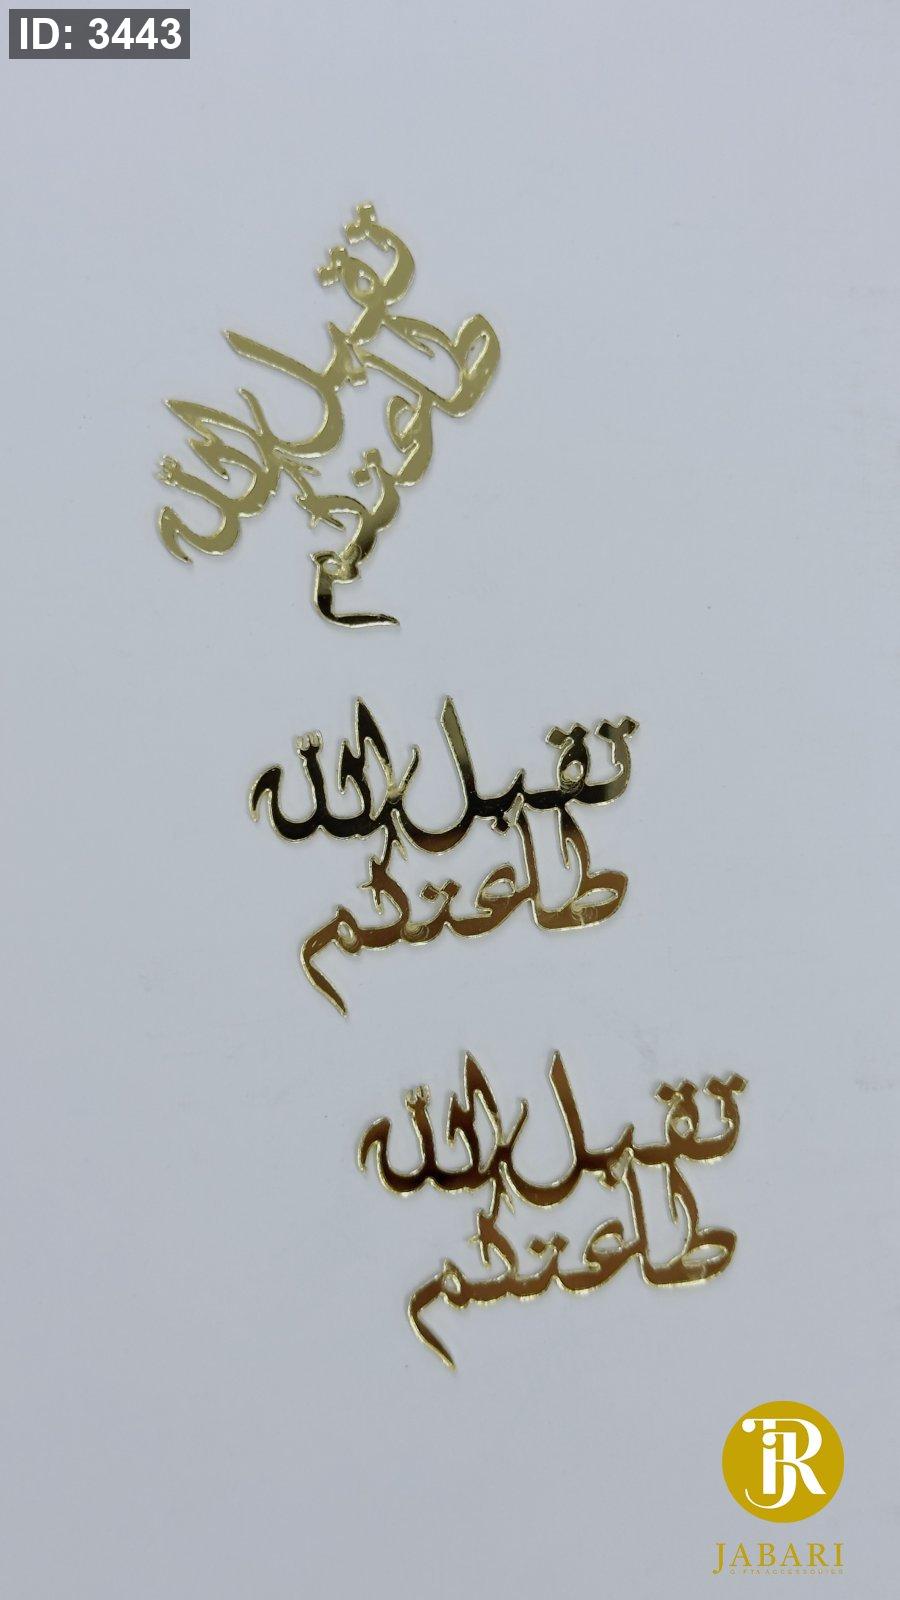 ID: 3443
تقبل الله
طاعتكم
تقبل الله
طاعتكم
تقبل الله
طاعتكم
JR
JABARI
GIFTS ACCESSOURIES